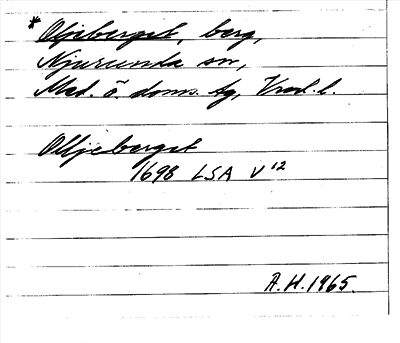 * Oljeberget, berg,
Njurunda sn,
Med. ö. doms. tg, Vnrl. l.
Olljeberget
1698 LSA V¹²
A.H. 1965.